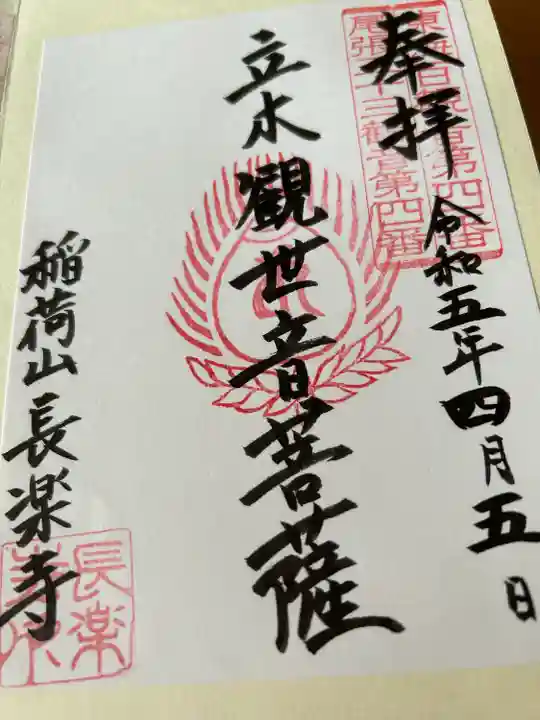 奉拝
令和五年四月五日
東海百観音第四番
尾張三十三観音第四番
立水觀世音菩薩
稲荷山長楽寺
長楽